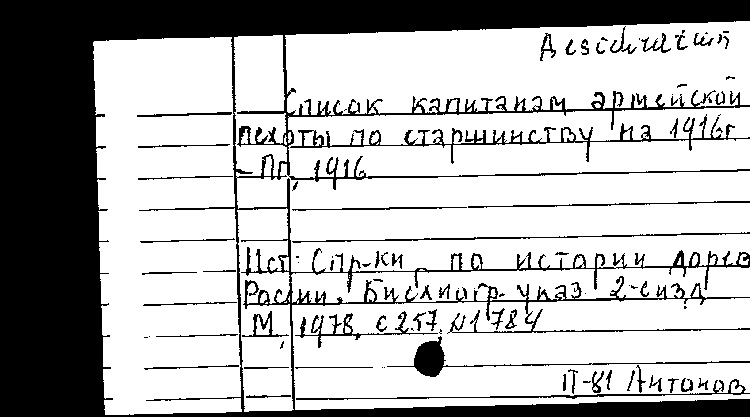 Desideratum
Список капитанам армейской
пехоты по старшинству на 1916г.
– Пг., 1916.
Ист.: Спр-ки по истории дорев.
России. Библиогр. указ. 2-е изд.
М., 1978, с 257, №1784
П-81 Антонов